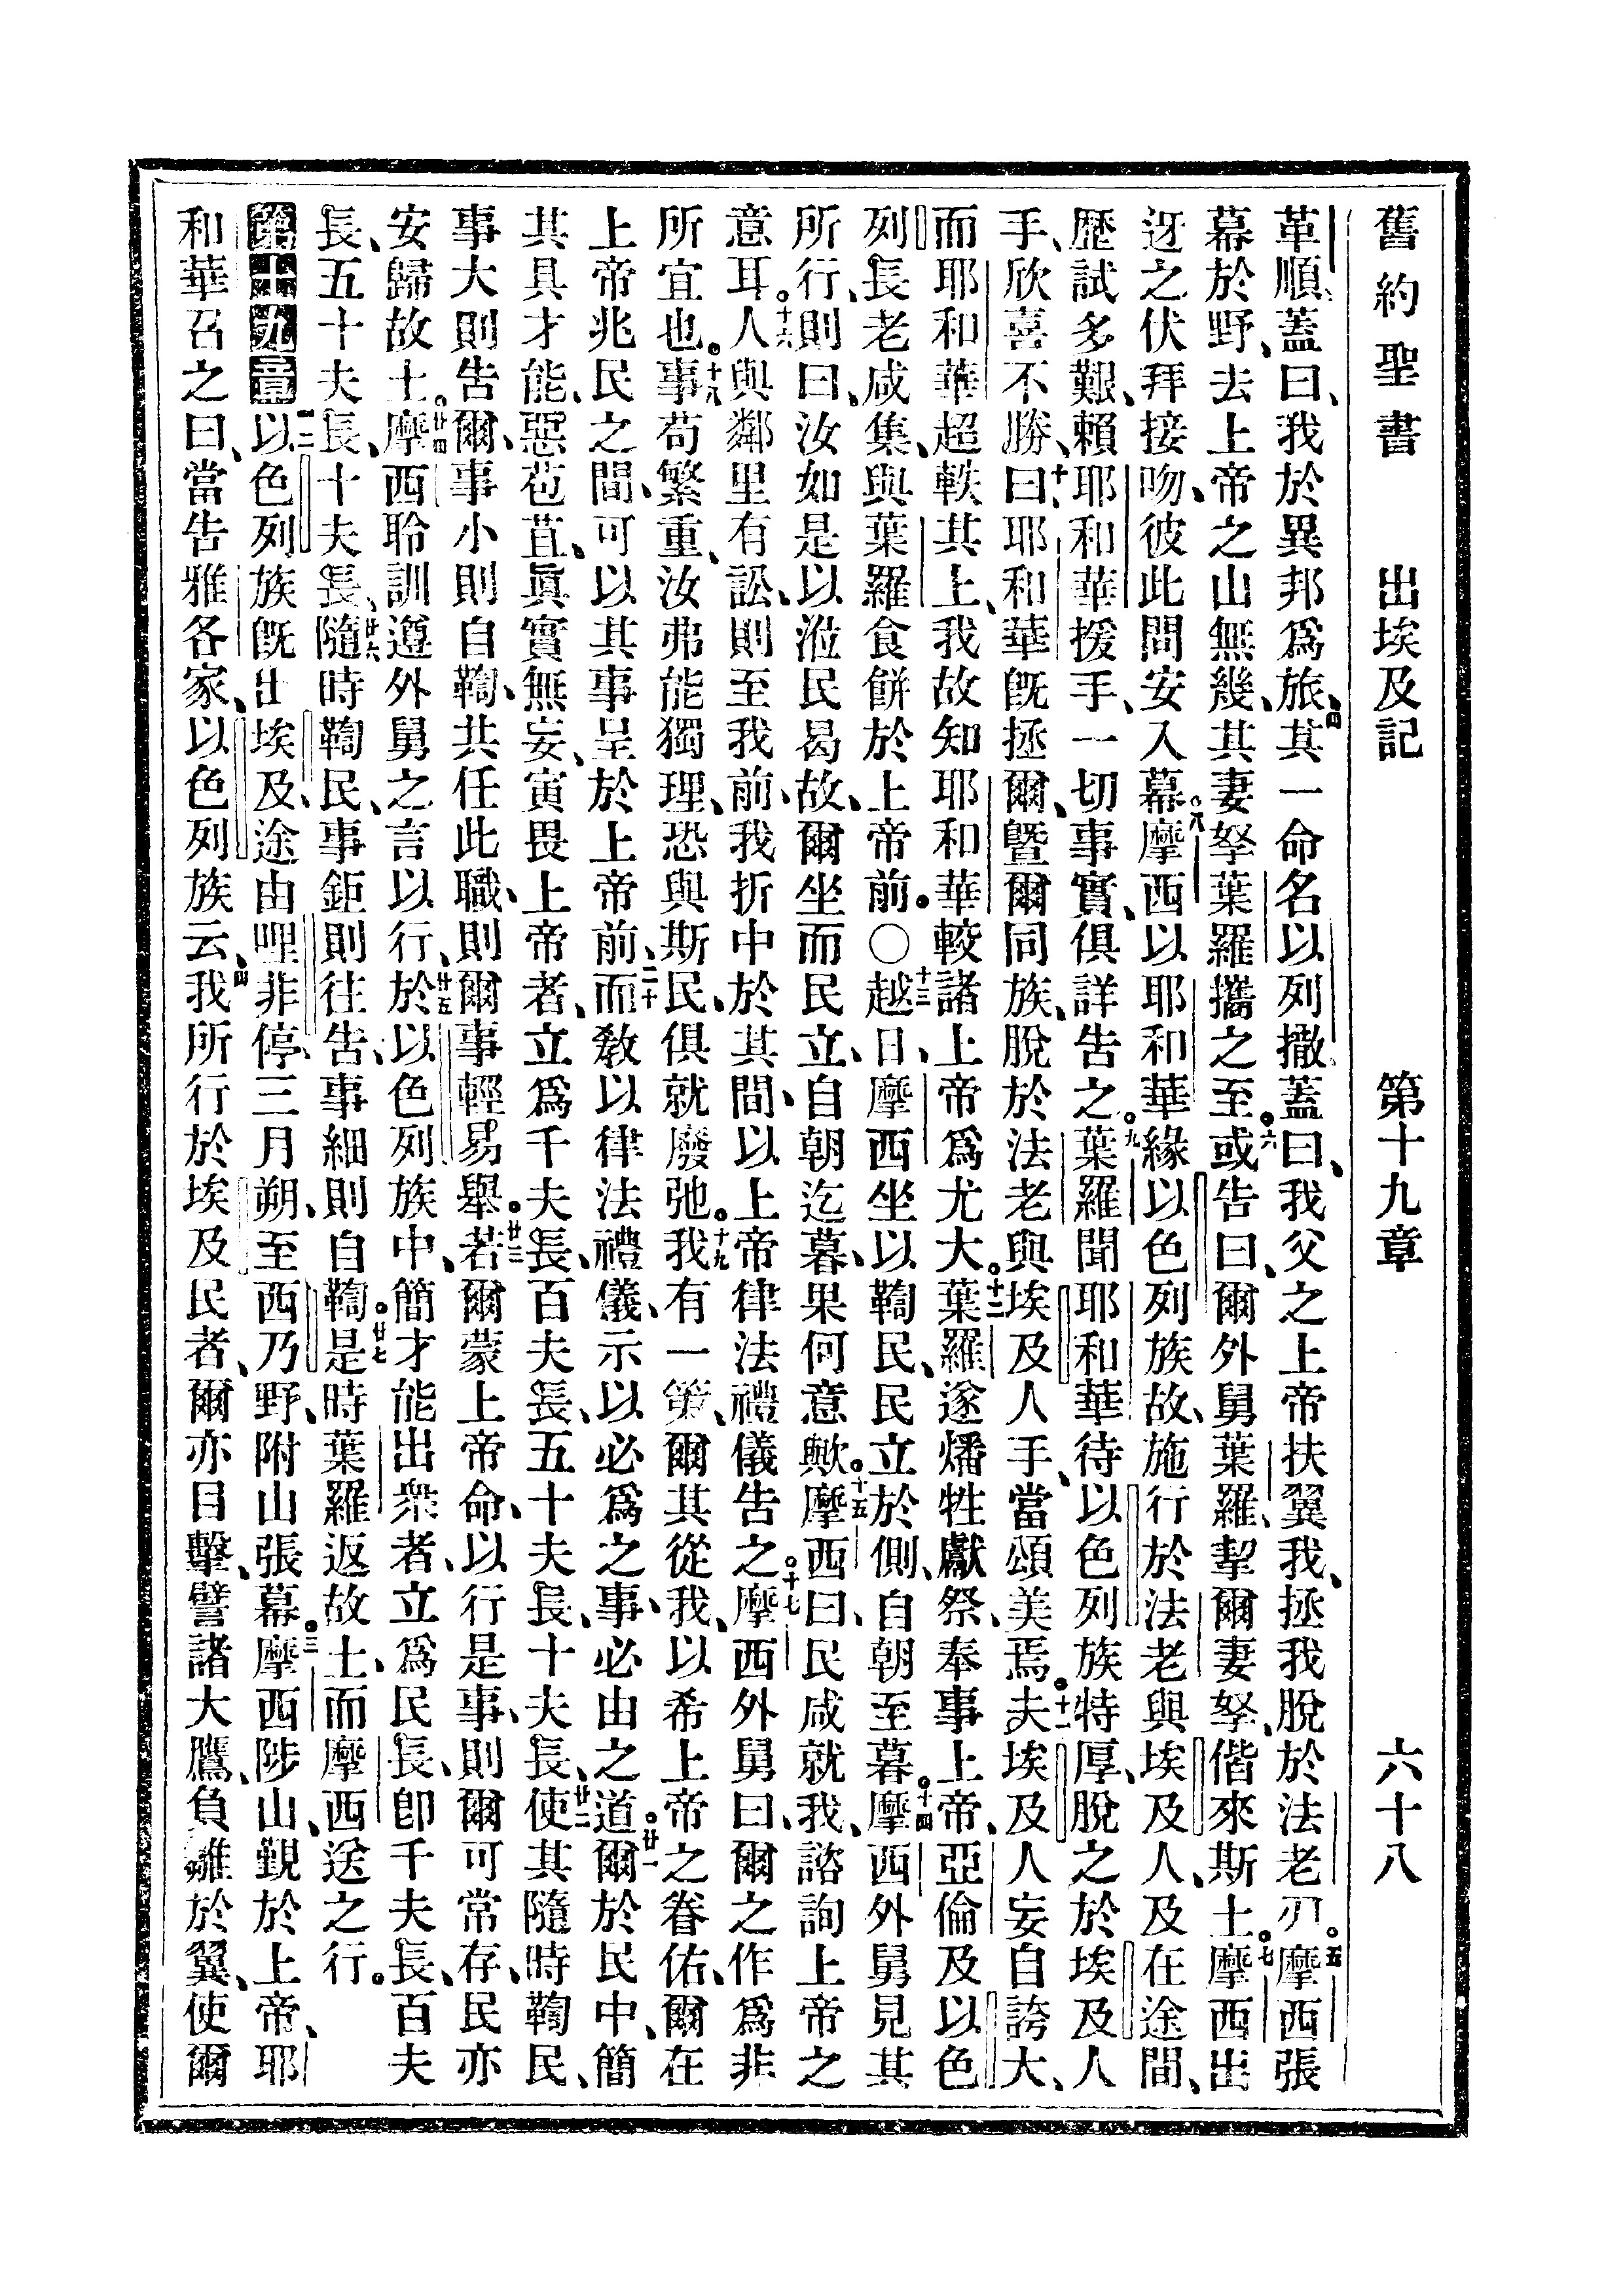 舊約聖書 出埃及記 第十九章 六十八
革順、蓋曰、我於異邦爲旅、四其一命名以列撒、蓋曰、我父之上帝扶翼我、拯我脫於法老刃。五摩西張
幕於野、去上帝之山無幾、其妻孥葉羅攜之至。六或告曰、爾外舅葉羅、挈爾妻孥、偕來斯土。七摩西出
迓之伏拜接吻、彼此問安入幕。八摩西以耶和華緣以色列族故、施行於法老與埃及人、及在途間、
歷試多艱、賴耶和華援手、一切事實、俱詳告之。九葉羅聞耶和華待以色列族特厚、脫之於埃及人
手、欣喜不勝、十曰、耶和華旣拯爾、曁爾同族、脫於法老與埃及人手、當頌美焉。十一夫埃及人妄自誇大、
而耶和華超軼其上、我故知耶和華較諸上帝爲尤大。十二葉羅遂燔牲獻祭、奉事上帝、亞倫及以色
列長老咸集、與葉羅食餅於上帝前。〇十三越日、摩西坐以鞫民、民立於側、自朝至暮。十四摩西外舅見其
所行、則曰、汝如是以涖民曷故、爾坐而民立、自朝迄暮、果何意歟。十五摩西曰、民咸就我、諮詢上帝之
意耳。十六人與鄰里有訟、則至我前、我折中於其間、以上帝律法禮儀告之。十七摩西外舅曰、爾之作爲非
所宜也。十八事苟繁重、汝弗能獨理、恐與斯民、俱就廢弛。十九我有一策、爾其從我、以希上帝之眷佑、爾在
上帝兆民之間、可以其事呈於上帝前、二十而敎以律法禮儀、示以必爲之事、必由之道。廿一爾於民中、簡
其具才能、惡苞苴、眞實無妄、寅畏上帝者、立爲千夫長、百夫長、五十夫長、十夫長、廿二使其隨時鞫民、
事大則告爾、事小則自鞫、共任此職、則爾事輕易舉。廿三若爾蒙上帝命、以行是事、則爾可常存、民亦
安歸故土。廿四摩西聆訓、遵外舅之言以行、廿五於以色列族中、簡才能出衆者、立爲民長、卽千夫長、百夫
長、五十夫長、十夫長、廿六隨時鞫民、事鉅則往告、事細則自鞫。廿七是時葉羅返故土、而摩西送之行。
第十九章 一二以色列族旣出埃及、途由哩非停、三月朔、至西乃野、附山張幕。三摩西陟山、覲於上帝、耶
和華召之曰、當告雅各家、以色列族云、四我所行於埃及民者、爾亦目擊、譬諸大鷹、負雛於翼、使爾